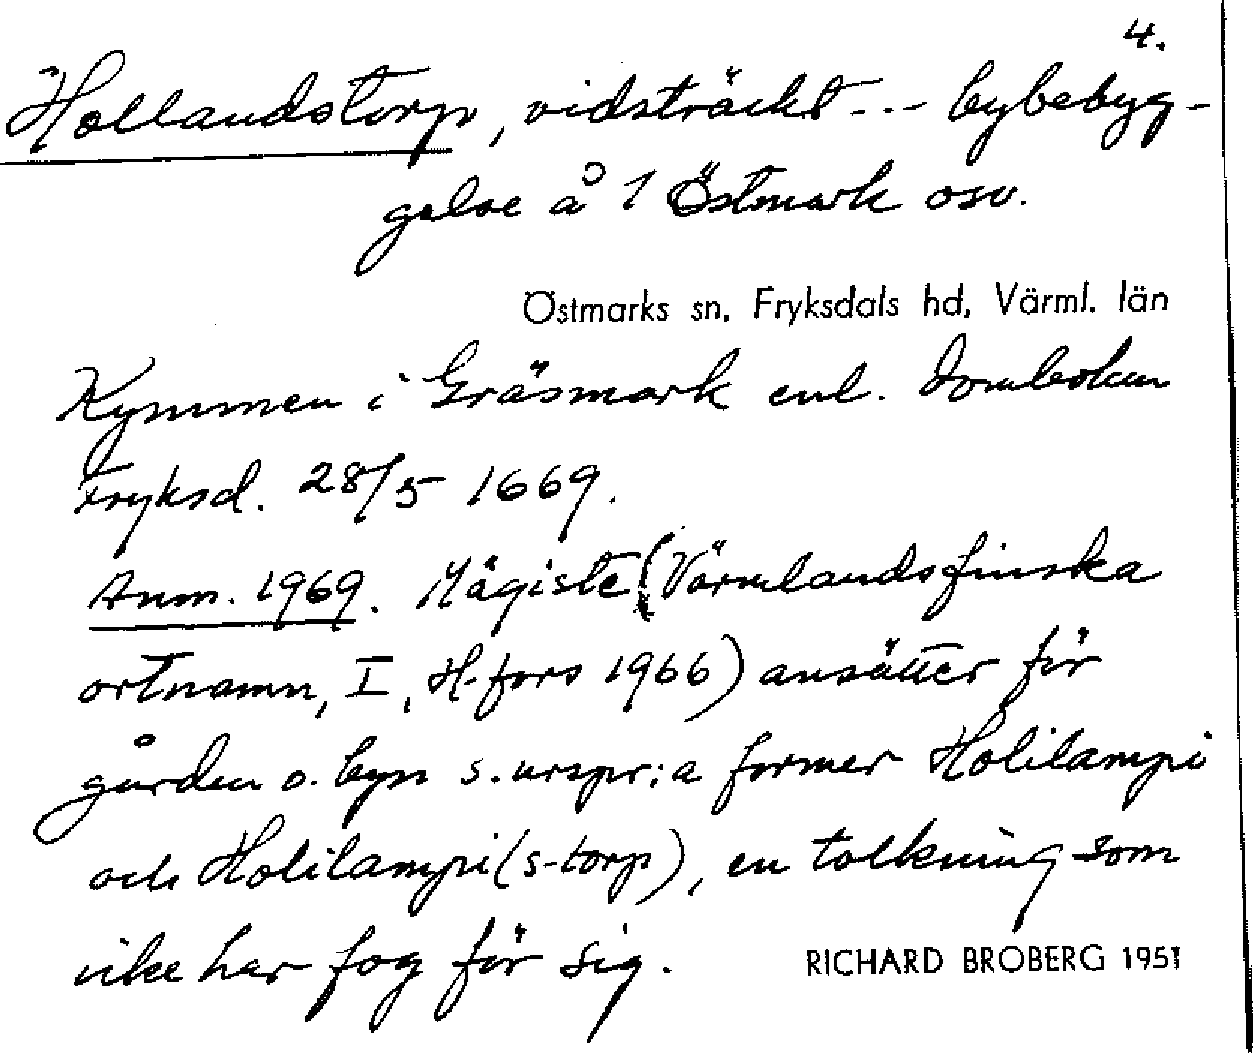 4.
Hollandstorp, vidsträckt - - - bybebyg-
gelse å 1 Östmark osv.
Östmarks sn, Fryksdals hd, Värml. län
Kymmen i Gräsmark enl. domboken
Fryksd. 28/5 1669.
Anm. 1969. Mägiste (Värmlandsfinska
ortnamn, I, H-fors 1966) ansätter för
gården o. byn s. urspr:a former Holilampi
och Holilampi(s-torp), en tolkning som
icke har fog för sig.
RICHARD BROBERG 1951